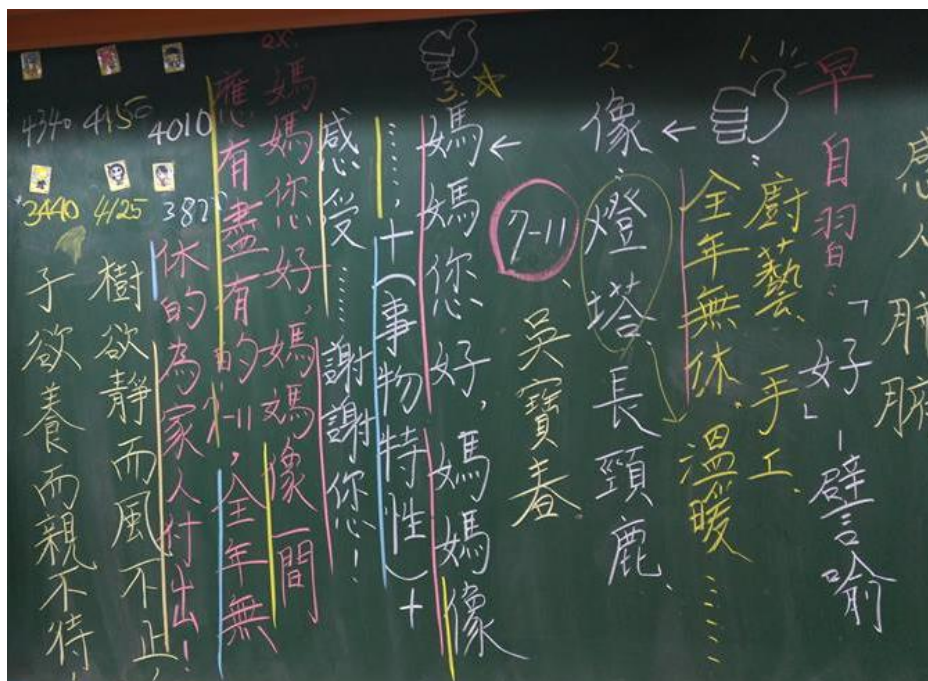 感人肺腑
早自習：「好」-譬喻
1. "廚藝、手工、
全年無休、溫暖……
2. 像"燈塔、長頸鹿、
7-11、吳寶春
3. 媽媽您好，媽媽像
……，+(事物特性)+
感受……謝謝您！
ex: 媽媽您好，媽媽像一間
應有盡有的7-11，全年無
休的為家人付出！
4340 4150 4010
3440 4125
樹欲靜而風不止，
子欲養而親不待！